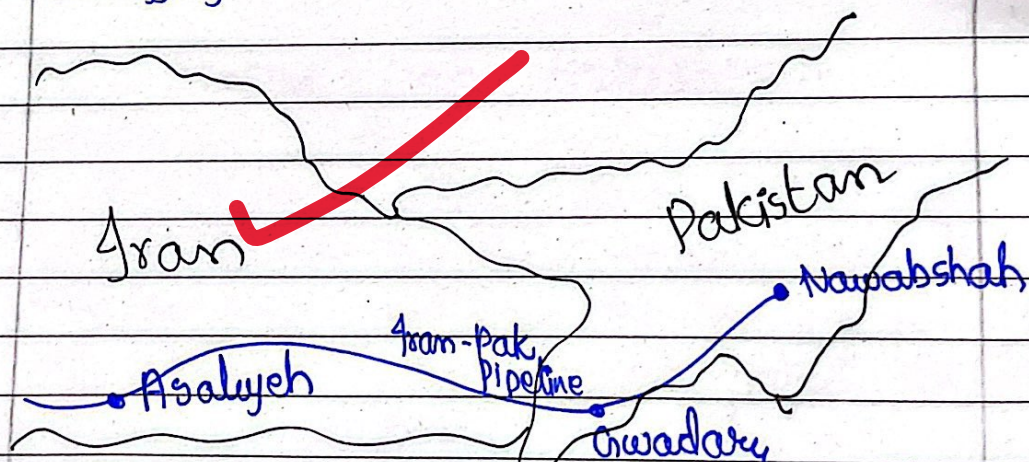 Iran
Pakistan
Nawabshah
Iran-Pak
Pipeline
Asaluyeh
Gwadar